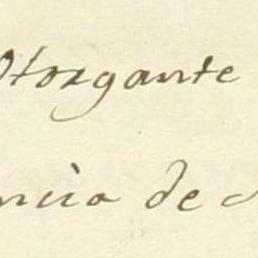 Otorgante
ncia de